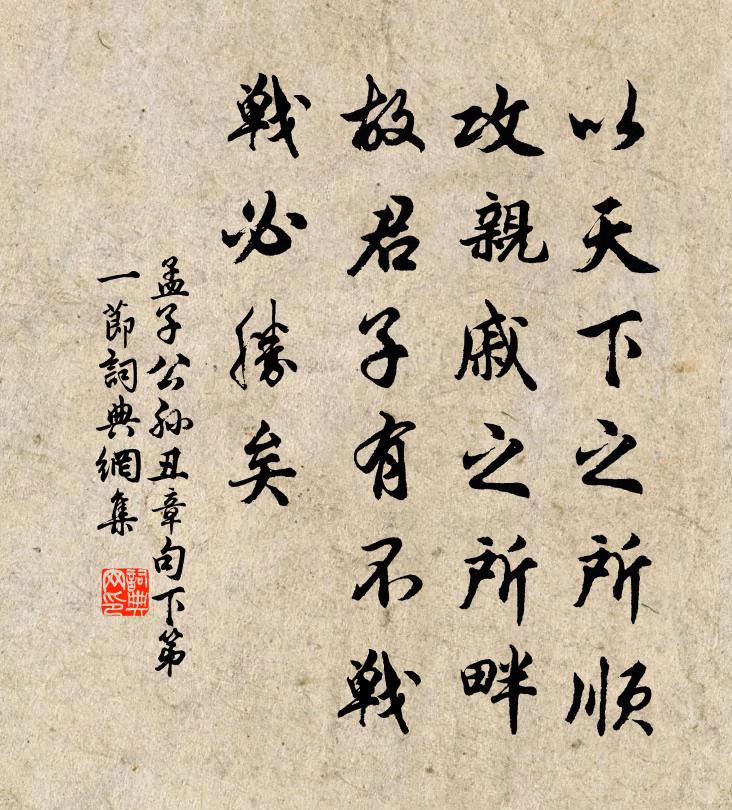 以天下之所順
攻親戚之所畔
故君子有不戰
戰必勝矣
孟子公孫丑章句下第
一節詞典網集
詞典
网印